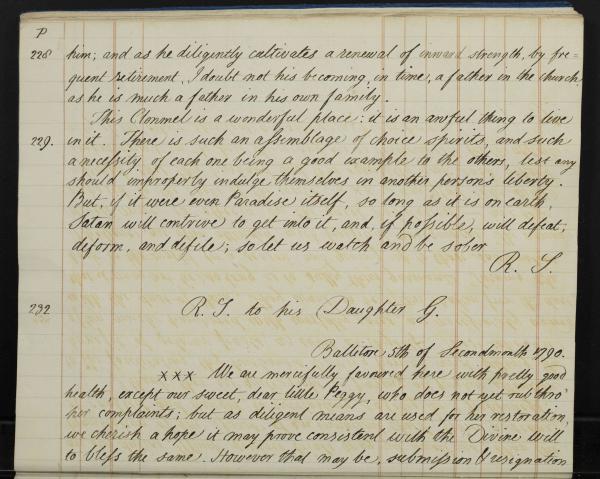 P
228 him; and as he diligently cultivates a renewal of inward strength, by fre=
quent retirement, I doubt not his becoming, in time, a father in the church,
as he is much a father in his own family.
This Clonmel is a wonderful place: it is an awful thing to live
229. in it. There is such an assemblage of choice spirits, and such
a necessity of each one being a good example to the others, lest any
should improperly indulge themselves in another person's liberty.
But, if it were even Paradise itself, so long as it is on earth,
Satan will contrive to get into it, and, if possible, will defeat,
deform, and defile; so let us watch and be sober
R. S.
232 R. S. to his Daughter G.
Ballitore 5th of Secondmonth 1790.
xxx We are mercifully favoured here with pretty good
health, except our sweet, dear, little Peggy, who does not yet rub thro'
her complaints; but as diligent means are used for her restoration,
we cherish a hope it may prove consistent with the Divine will
to bless the same. However that may be, submission & resignation